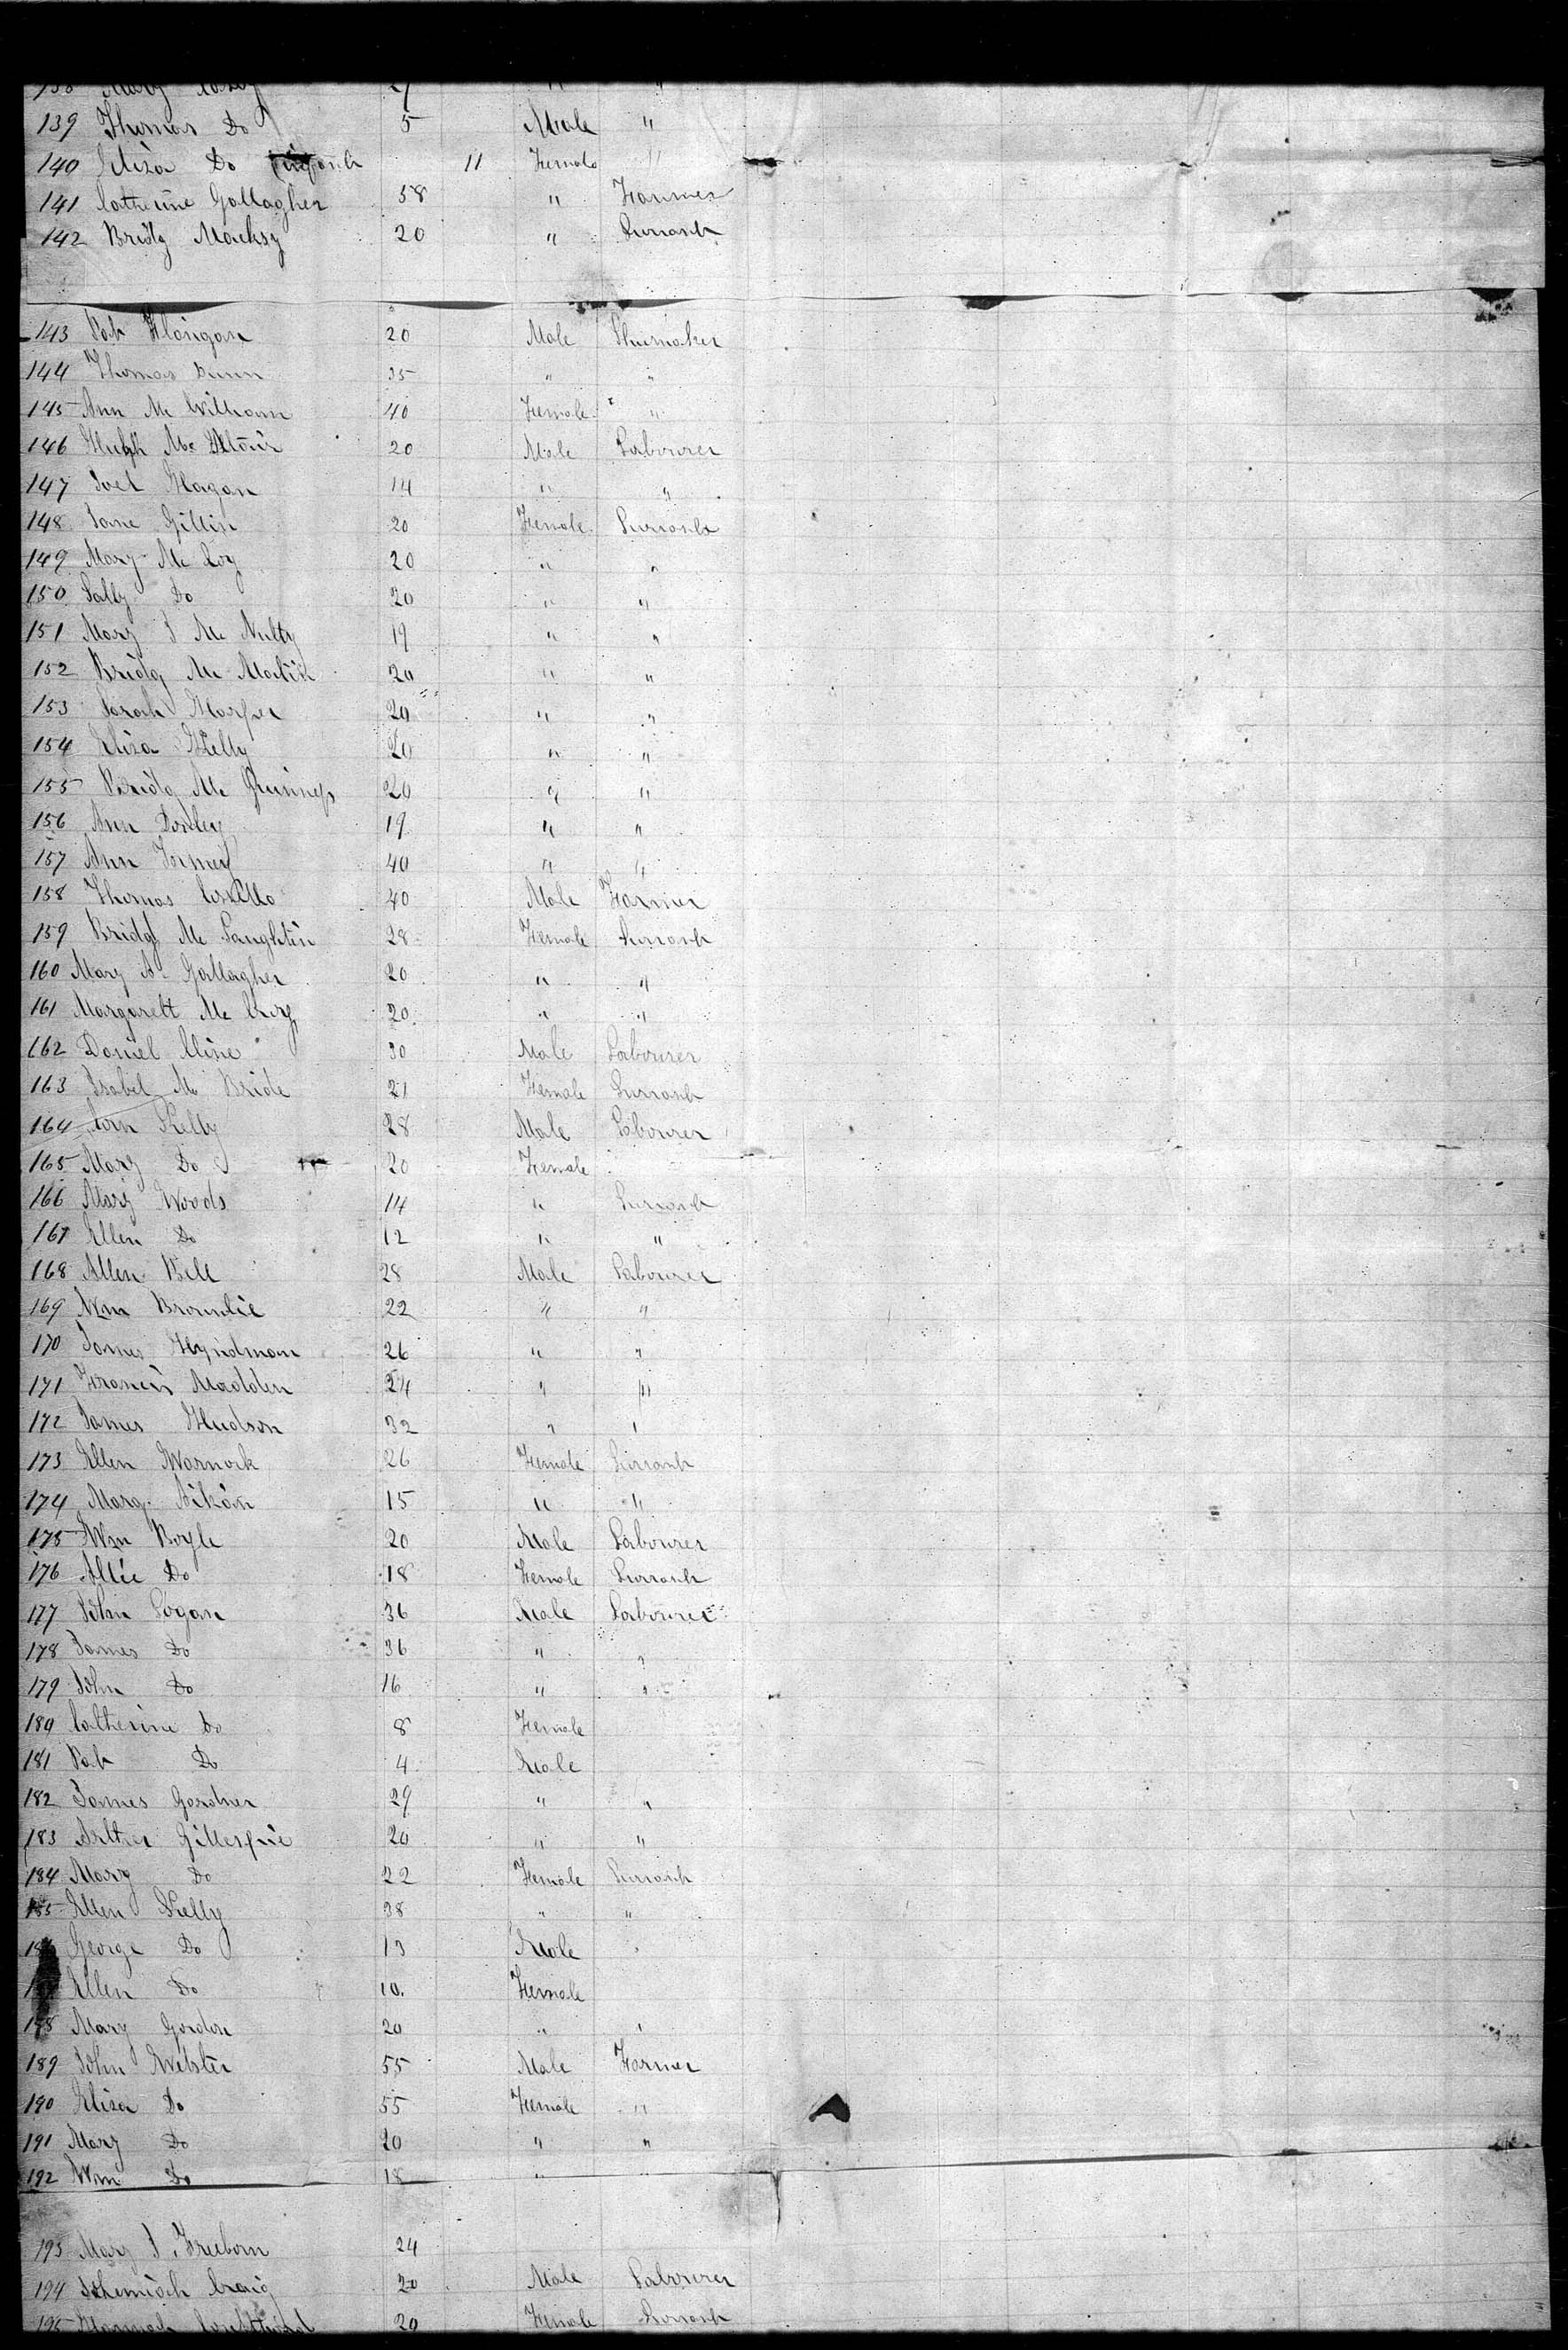 138 Mary
139 Thomas Do 5 Male "
140 Eliza Do 11 Female "
141 Catherine Gallagher 58 " Farmer
142 Bridg 20 " Servant
143 Pat Flangan 20 Male Shumaker
144 Thomas Dunn 35 " "
145 Ann Mc William 40 Female " "
146 Hugh Mc 20 Male Labourer
147 Hagan 14 " "
148 Jane Gillin 20 Female Servant
149 Mary Mc 20 " "
150 Sally Do 20 " "
151 Mary J Mc Nulty 19 " "
152 Bridg Mc 20 " "
153 Sarah Harper 20 " "
154 Eliza Kelly 20 " "
155 Bridg Mc 20 " "
156 Ann 19 " "
157 Ann 40 " "
158 Thomas 40 Male Farmer
159 Bridgt Mc Laughlin 28 Female Servant
160 Mary A Gallagher 20 " "
161 Margarett Mc 20 " "
162 Daniel Cline 30 Male Labourer
163 Isabel Mc Bride 21 Female Servant
164 Kelly 28 Male Labourer
165 Mary Do 20 Female
166 Mary Woods 14 " Servant
167 Ellen Do 12 " "
168 Allen Bell 28 Male Labourer
169 Wm Brownlie 22 " "
170 James Hyndman 26 " "
171 Francis Madden 24 " "
172 James Hudson 32 " "
173 Ellen Warnock 26 Female Servant
174 Marg. 15 " "
175 Wm Boyle 20 Male Labourer
176 Do 18 Female Servant
177 John Logan 36 Male Labourer
178 James Do 36 " "
179 John Do 16 " "
180 Catherine Do 8 Female
181 Pat Do 4 Male
182 James Gardner 29 " "
183 Gillespie 20 " "
184 Mary Do 22 Female Servant
185 Ellen Kelly 38 " "
186 George Do 13 Male "
Ellen Do 10. Female
188 Mary Gordon 20 " "
189 John Webster 55 Male Farmer
190 Eliza Do 55 Female "
191 Mary Do 20 " "
192 Wm Do 18 " "
193 Mary J. Freeborn 24
194 Craig 20 Male Labourer
195 Hannah 20 Female Servant